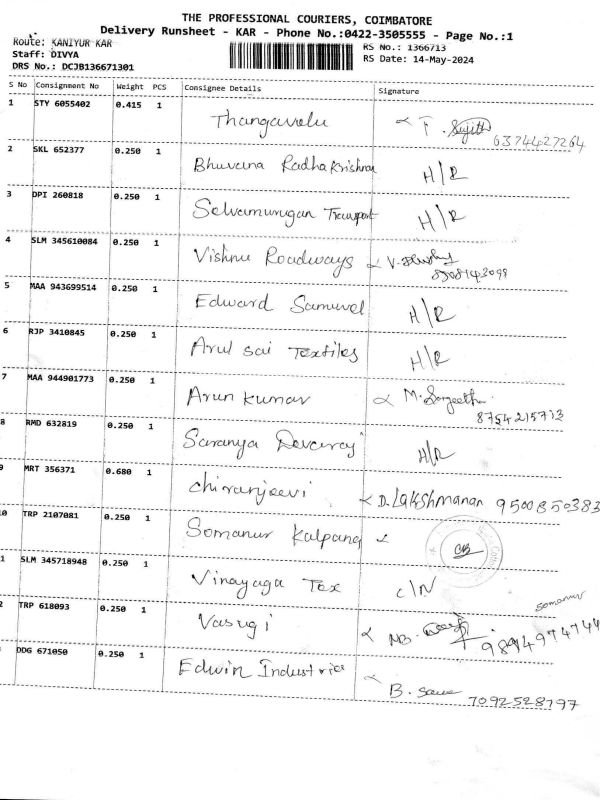 THE PROFESSIONAL COURIERS, COIMBATORE
Delivery Runsheet - KAR - Phone No.:0422-3505555 - Page No.:1
Route: KANIYUR KAR
RS No.: 1366713
Staff: DIVYA
RS Date: 14-May-2024
DRS No.: DCJB136671301
S No Consignment No Weight PCS Consignee Details Signature
1 STY 6055402 0.415 1 Thangavelu T. Sujith 6374427264
2 SKL 652377 0.250 1 Bhuvana Radhakrishnan H/R
3 DPI 260818 0.250 1 Selvamurugan Transport H/R
4 SLM 345610084 0.250 1 Vishnu Roadways V.
5 MAA 943699514 0.250 1 Edward Samuvel H/R
6 RJP 3410845 0.250 1 Arul sai Textiles H/R
7 MAA 944901773 0.250 1 Arun kumar M. Sangeetha 8754215713
8 RMD 632819 0.250 1 Saranya Devaraj H/R
9 MRT 356371 0.680 1 chiranjeevi D. Lakshmanan 9500850383
10 TRP 2107081 0.250 1 Somanur Kalpana
1 SLM 345718948 0.250 1 Vinayaga Tex C/N
2 TRP 618093 0.250 1 Vasugi NB. somanur 9894974744
DDG 671050 0.250 1 Edwin Industries B. 7092528797